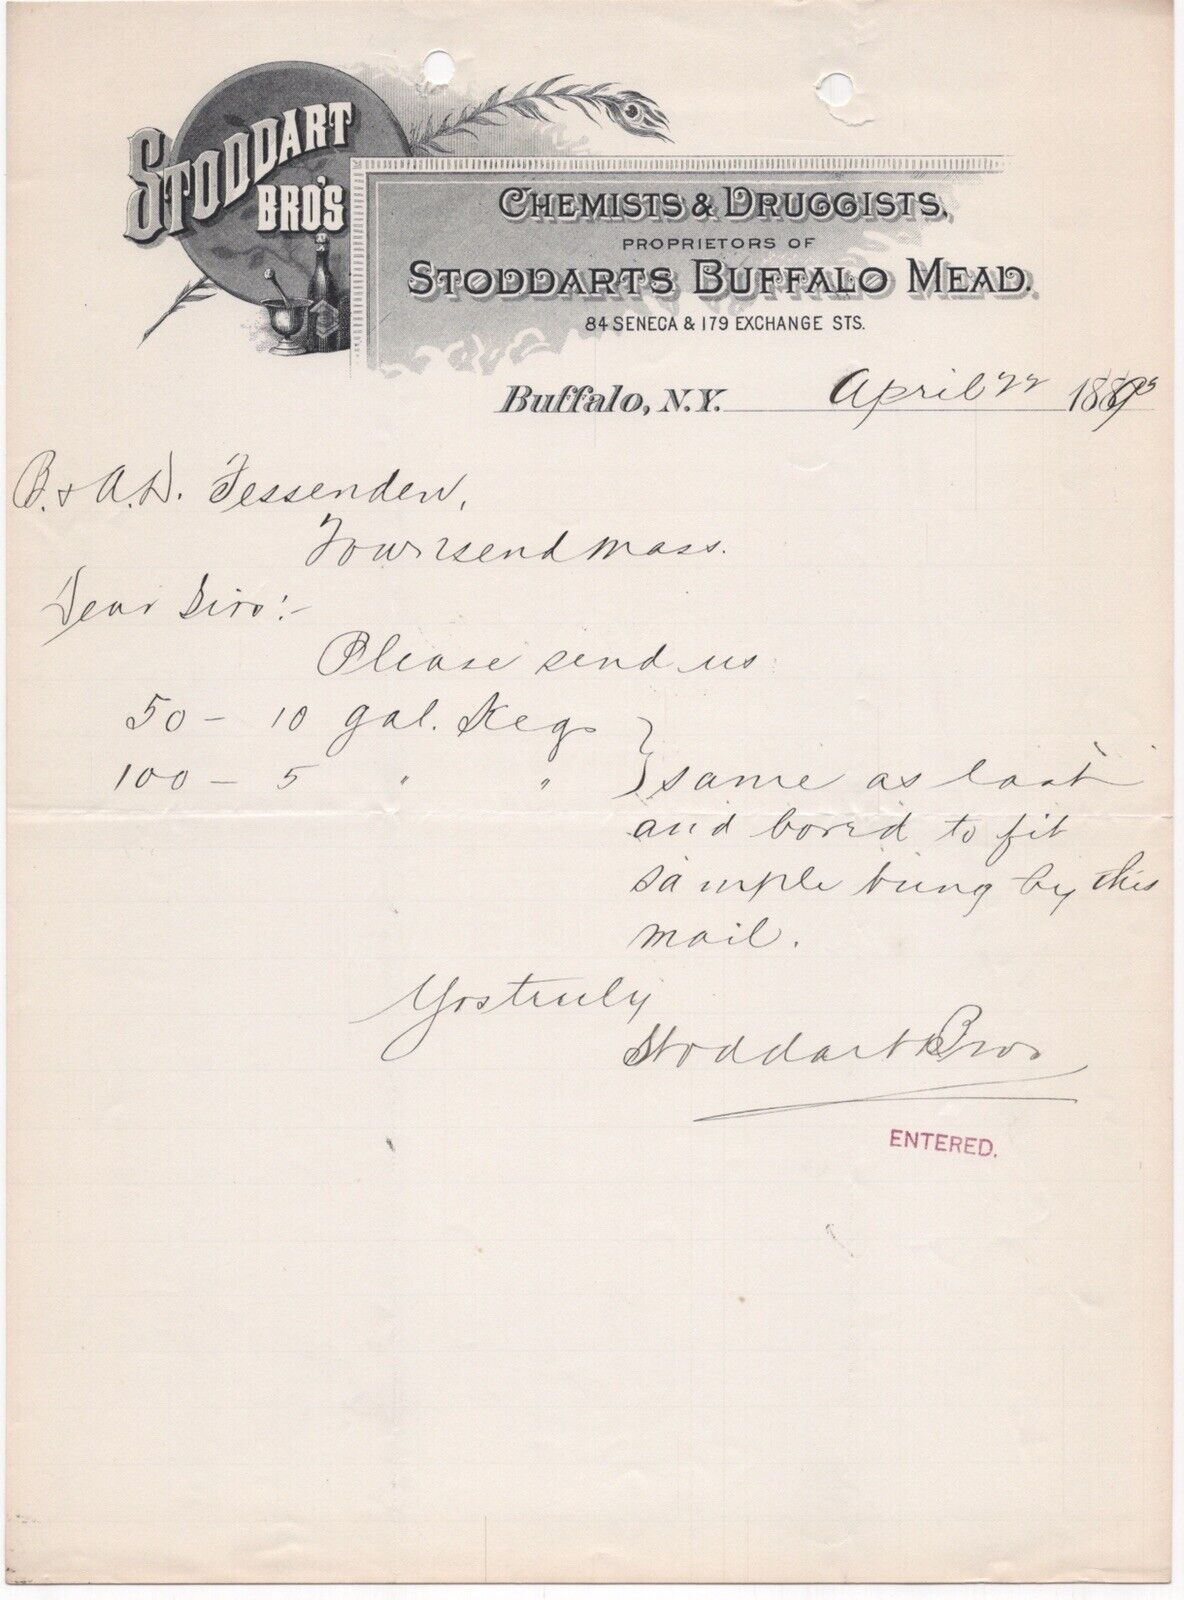 STODDART
BRO'S
CHEMISTS & DRUGGISTS.
PROPRIETORS OF
STODDARTS BUFFALO MEAD.
84 SENECA & 179 EXCHANGE STS.
Buffalo, N.Y. April 22 188
B. & A.D. Fessenden,
Townsend Mass.
Dear Sirs:-
Please send us
50 - 10 gal. Kegs
100 - 5 " " } same as last
and bored to fit
sample bung by this
mail.
Yos truly
Stoddart Bros
ENTERED.